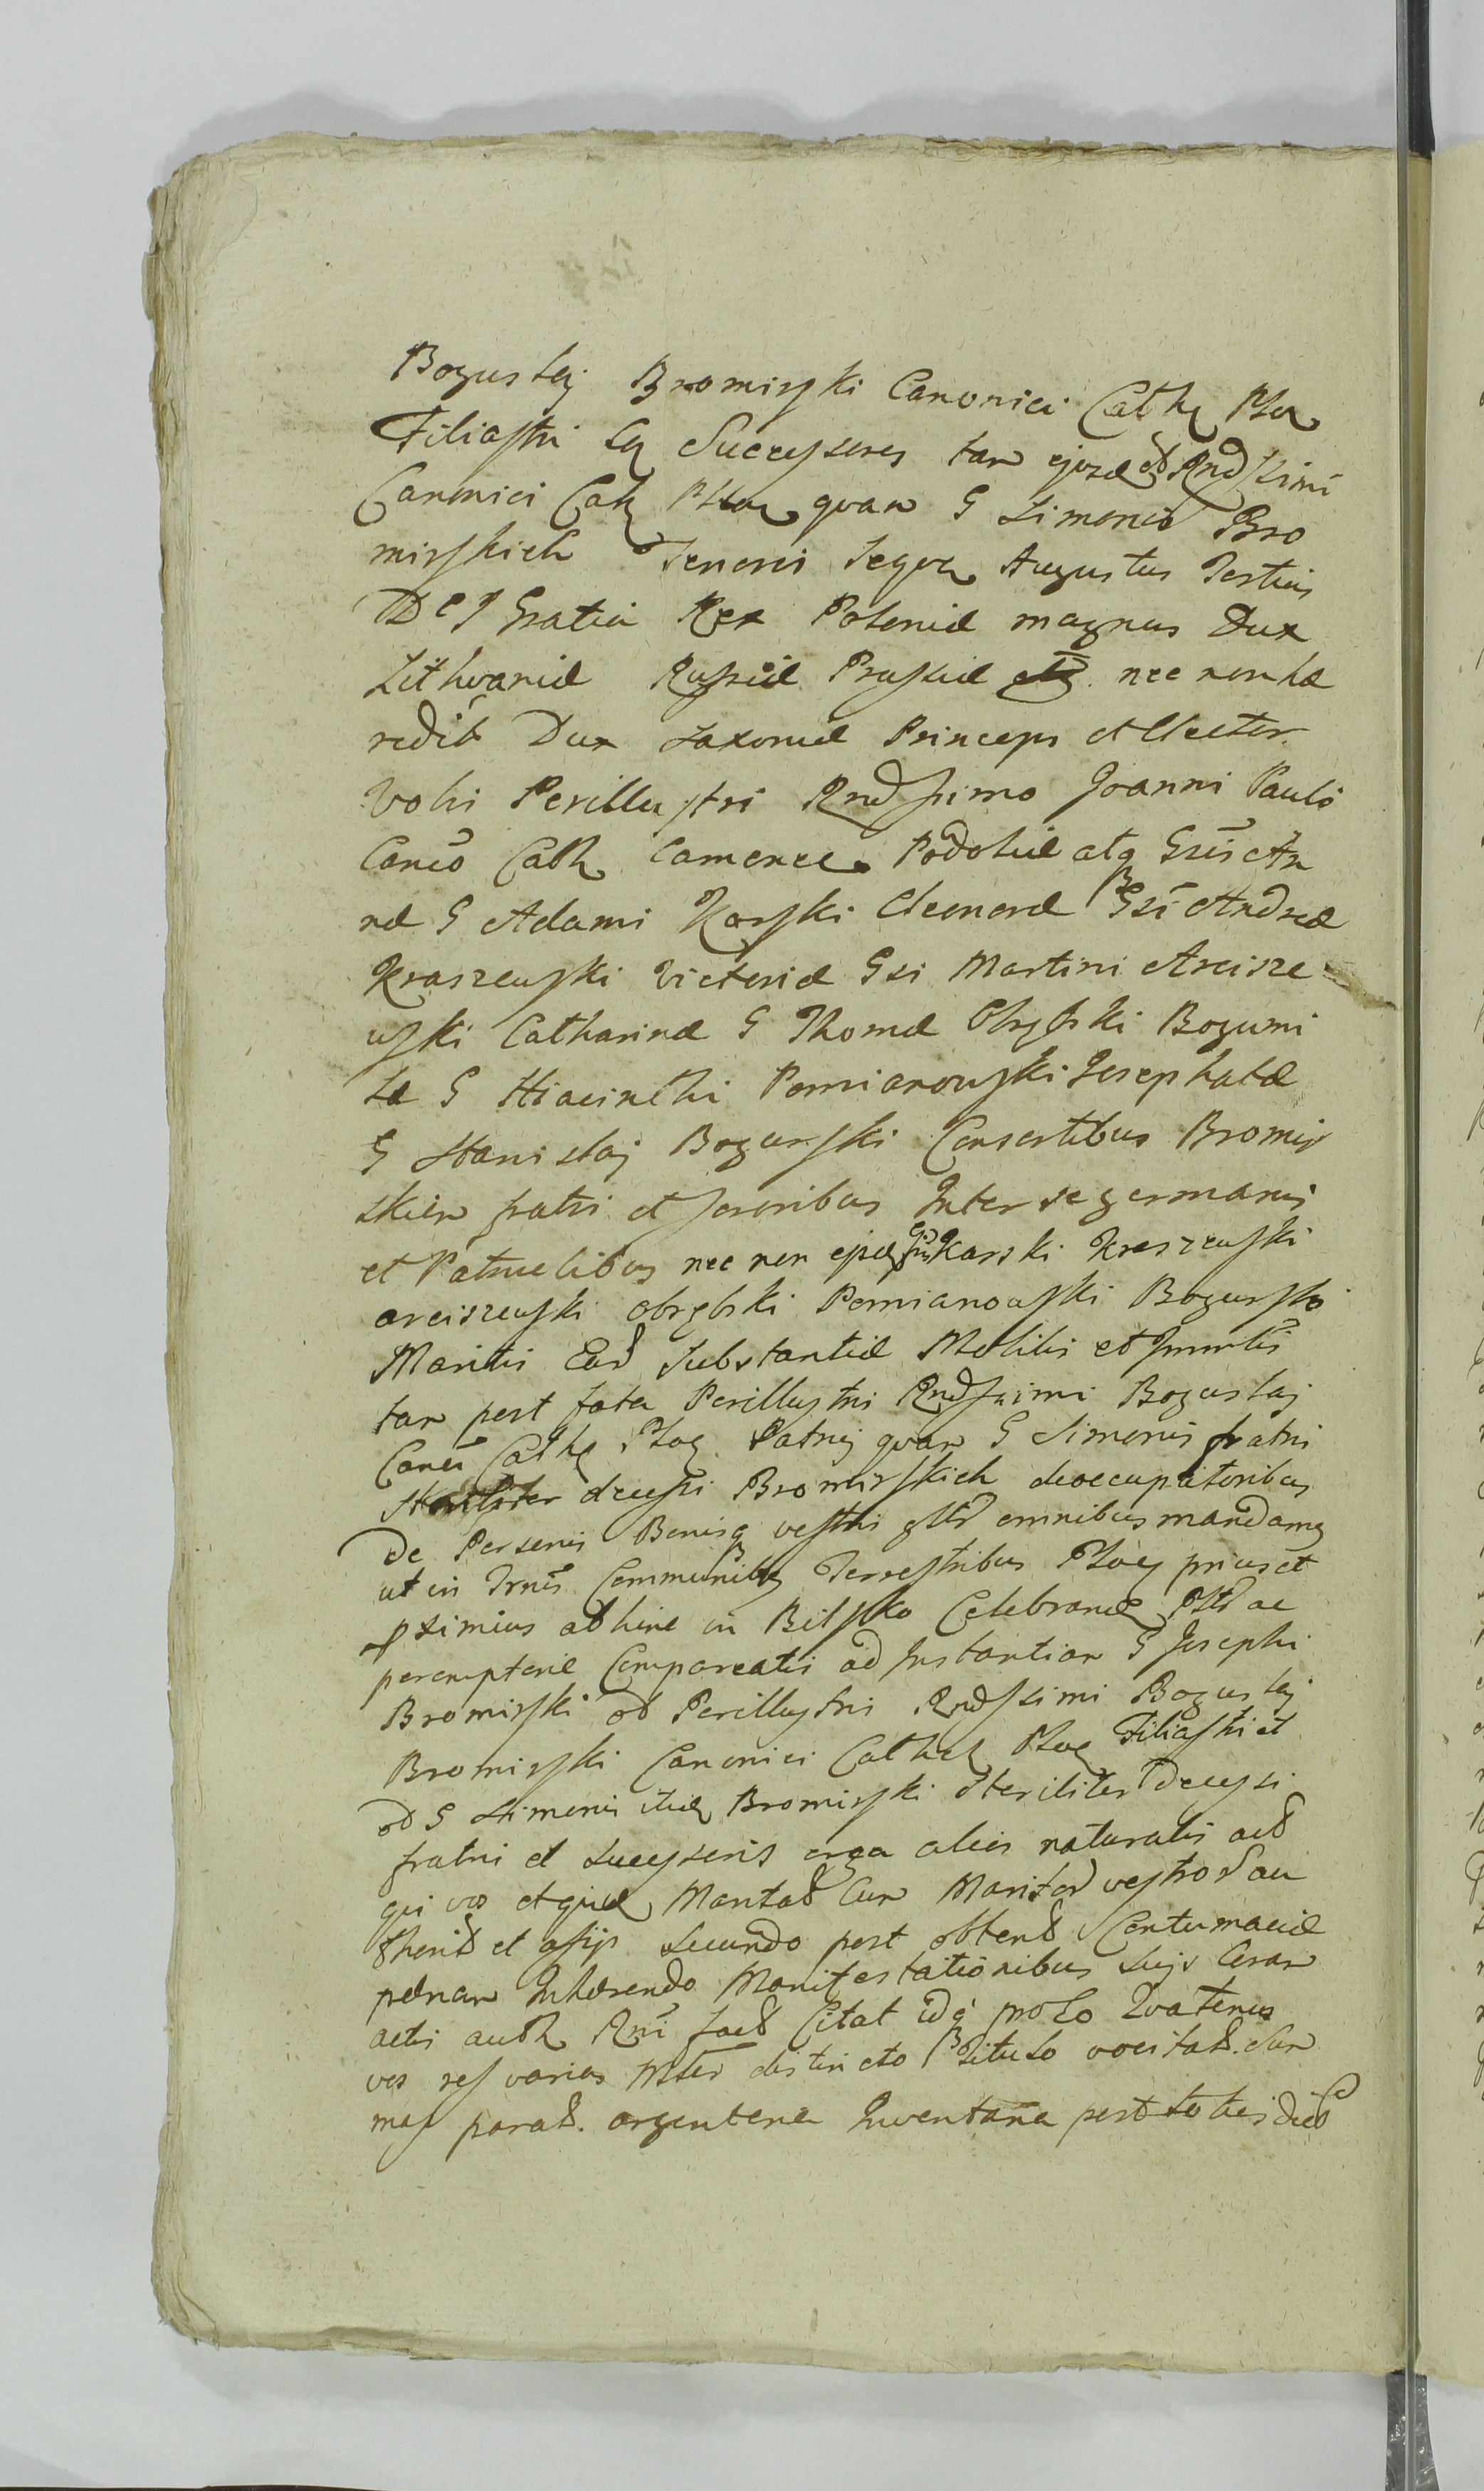 Bogusłaj Bromirski Canonici Cath Płoc
Filiastri Ł Successores tam ejusd ob Rndssimi
Canonici Cath Płoc quam G Simonis Bro
mirskich Tenoris Seqve Augustus Tertius
DeJ Gratia Rex Poloniæ magnus Dux
Lithvaniæ Russiæ Prussiæ etc. nec non hæ
redit Dux Saxoniæ Princeps et Elector.
Vobis Perillustri Rndssimo Joanni Paulo
Canco Cath Camenec Podoliæ atq Gsis An
næ G Adami Karski Eleonoræ Gsi Andreæ
Kraszewski Victoriæ Gsi Martini Arcisze
wski Catharinæ G Thomæ Obrębski Bogumi
łæ G Hiacinthi Pomianowski Josephatæ
G Stanisłaj Bogurski Consortibus Bromir
skim fratri et sororibus Inter se germanis
et Patruelibus nec non ejusd Gsis Karski Kraszewski
arciszewski obrębski Pomianowski Bogurski
Maritis Ead Substantiæ Mobilis et Immblis
tam post fata Perillustri Rndssimi Bogusłaj
Canci Cathe Płoc Patruj quam G Simonis fratris
Steriliter decessi Bromirskich deoccupatoribus
De Personis Bonisq vestris gltr omnibus mandamq
ut in Trnis Communibq Terrestribus Płocen prius et
pximius abhinc in Bielsko Celebrand Pltr ac
peremptorie Compareatis ad Instantiam G Josephi
Bromirski ob Perillustris Rndssimi Bogusłaj
Bromirski Canonici Cathed Płoc Filiastri et
ob G Simonis itid Bromirski steriliter decessi
fratris et Successoris erga alios naturalis act
qui vos et quæ Maritat Cum Maritor vestror au
thorit et assis Secundo post obtent Contumaciæ
pænam Inhærendo Manifestationibus Suis Coram
actis auth Rni fact Citat idq prolo Quatenus
vos res varias Mltr districto titulo vocitat. Sum
mas parat. argenteria Inventaria post toties dict